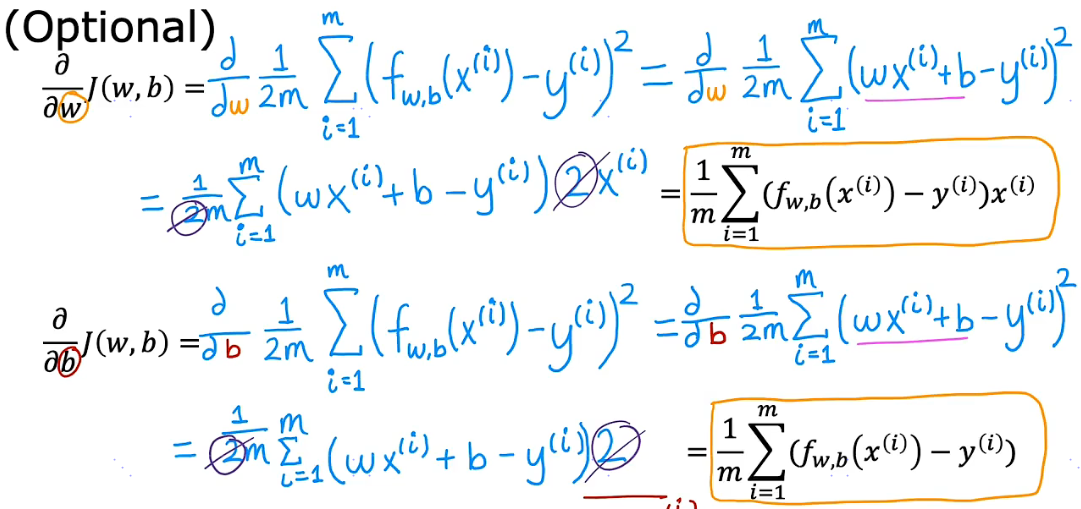 (Optional)
∂/∂w J(w, b) = ∂/∂w 1/2m ∑_{i=1}^{m} (f_{w,b}(x^{(i)}) − y^{(i)})² = ∂/∂w 1/2m ∑_{i=1}^{m} (wx^{(i)} + b − y^{(i)})²
= 1/2m ∑_{i=1}^{m} (wx^{(i)} + b − y^{(i)}) 2x^{(i)} = 1/m ∑_{i=1}^{m} (f_{w,b}(x^{(i)}) − y^{(i)})x^{(i)}
∂/∂b J(w, b) = ∂/∂b 1/2m ∑_{i=1}^{m} (f_{w,b}(x^{(i)}) − y^{(i)})² = ∂/∂b 1/2m ∑_{i=1}^{m} (wx^{(i)} + b − y^{(i)})²
= 1/2m ∑_{i=1}^{m} (wx^{(i)} + b − y^{(i)}) 2 = 1/m ∑_{i=1}^{m} (f_{w,b}(x^{(i)}) − y^{(i)})